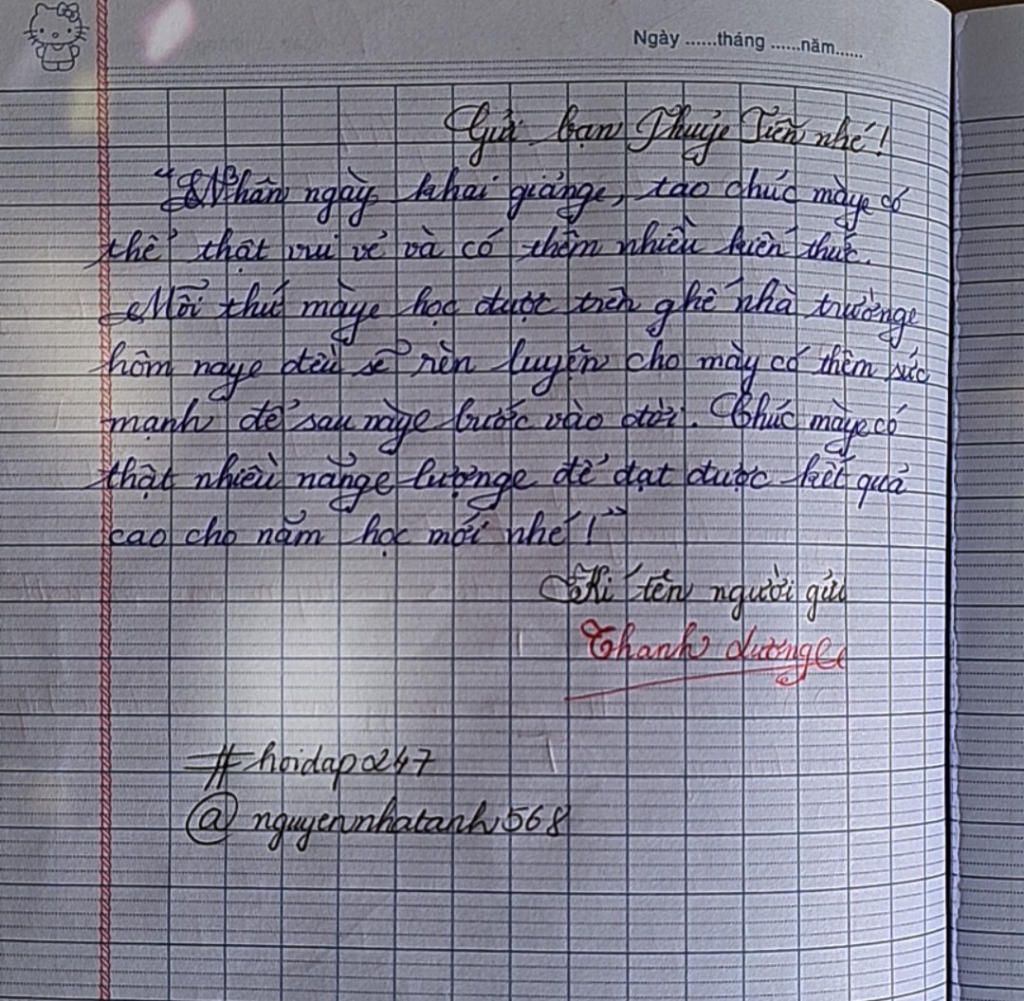 Ngày ......tháng ......năm......
Gửi bạn Thuỷ Tiên nhé!
"Nhân ngày khai giảng, tao chúc mày có
thể thật vui vẻ và có thêm nhiều kiến thức.
Mỗi thứ mày học được trên ghế nhà trường
hôm nay đều sẽ rèn luyện cho mày có thêm sức
mạnh để sau này bước vào đời. Chúc mày có
thật nhiều năng lượng để đạt được kết quả
cao cho năm học mới nhé!"
Kí tên người gửi
Thanh dương
#hoidap247
@nguyennhatanh568